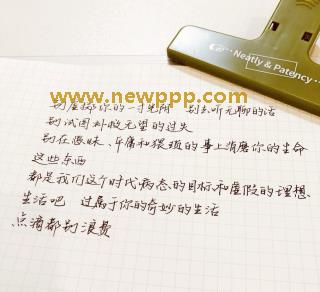 Neatly & Patency
别虚掷你的一寸光阴 别去听无聊的话
www.newppp.com
别试图补救无望的过失
别在愚昧、平庸和猥琐的事上消磨你的生命
这些东西
都是我们这个时代病态的目标和虚假的理想.
生活吧 过属于你的奇妙的生活
点滴都别浪费